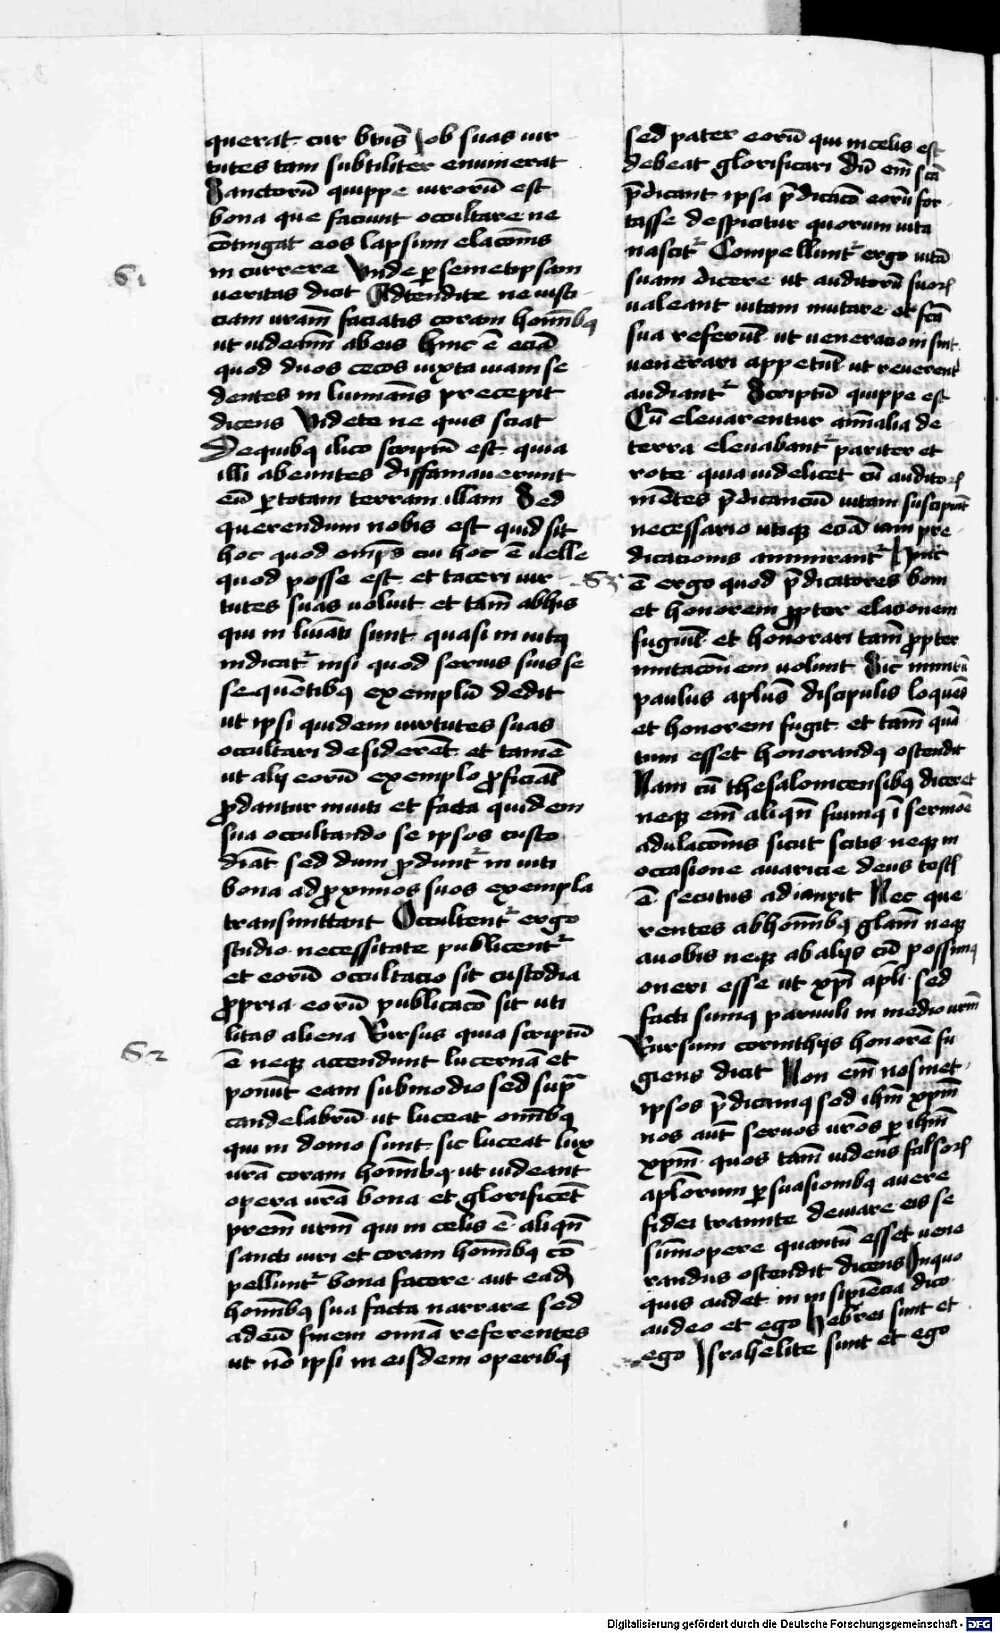 querat· cur btus̄ Iob suas vir
tutes tam subtiliter enumerat
Sanctorū quippe virorū est
bona que faciunt occultare ne
cōtingat eos lapsum elacōnis
in currere Vnde p semetipsam
S1
veritas dicit Adtendite ne iusti
ciam vram̄ faciatis coram homībꝫ
ut videamī abeis hinc ē eciā
quod duos cecos iuxta viam se
dentes in lumīans precepit
dicens Videte ne quis sciat
De quibꝫ ilico scriptū est· quia
illi abeuntes diffamauerunt
eū p totam terram illam Sed
querendum nobis est quid sit
hoc quod omps̄ cui hoc ē uelle
quod posse est· et taceri vir
tutes suas uoluit et tam̄ abhis
qui in lumāti sunt· quasi inuitꝫ
indicat᷑ nisi quod seruis suis se
se·quētibꝫ exemplū dedit
ut ipsi quidem virtutes suas
occultari desiderēt· et tamē
ut alij eorū exemplo ꝓficiāt
ꝓdantur inuiti et facta quidem
sua occultando se ipsos custo
diāt· sed dum ꝓdunt᷑ in uiti
bona ad ꝓximos suos exempla
transmittant Occultent᷑ ergo
studio· necessitate publicent᷑
et eorū occultacio sit custodia
ꝓpria· eorū publicacō sit uti
litas aliena Rursus quia scriptū
S2
ē neqꝫ accendunt lucernā et
ponūt eam submodio sed supra
candelabrū· ut luceat omībꝫ
qui in domo sunt· sic luceat lux
vrā coram homībꝫ· ut videant
opera vrā bona et glorificēt
prem̄ vrm̄ qui in celis ē· aliqn̄
sancti viri et coram homībꝫ cō
pellunt᷑ bona facere· aut eadē
homībꝫ sua facta narrare sed
adeū finem omīa referentes
ut nō ipsi in eisdem operibꝫ
sed pater eorū qui in celis est
debeat glorificari dū em̄ scā
p̄dicant ipsa p̄dicacō eorū for
tasse despicitur quorum vita
nescit᷑ Compellunt᷑ ergo vitā
suam dicere ut auditorū suoꝝ
ualeant vitam mutare· et fcā
sua referūt· ut ueneracioni sint·
uenerari appetūt ut reuerent᷑
audiant᷑ Scriptū quippe est
Cū eleuarentur aīmalia de·
terra eleuabant᷑ pariter et
rote· quia uidelicet cū auditoꝝ
mētes p̄dicanciū vitam suscipiūt
necessario utiqꝫ eciā iam pre·
dicacionis ammirant᷑ Hinc
S3
ē ergo quod p̄dicatores boni
et honorem ꝓpter elacionem
fugiūt· et honorari tam̄ ꝓpter
imitacōnem uolunt Sic nimirū
paulus aplus̄ discipulis loquēs
et honorem fugit· et tam̄ quā
tum esset honorandꝫ ostendit
Nam cū thesalonicensibꝫ diceret
neqꝫ em̄ aliqn̄ fuimꝫ ī sermōē
adulacōnis sicut scitis· neqꝫ in
occasione auaricie deus testꝭ
ē secutus adiunxit Nec que·
rentes abhomībꝫ glam̄ neqꝫ
auobis neqꝫ ab alijs cū possimꝫ
oneri esse ut xpi apli· sed
facti sumꝫ paruuli in medio vrm̄
Rursum corinthijs honorē fu·
giens dicit Non em̄ nosmet·
ipsos p̄dicamꝫ sed ihm̄ xpm̄
nos aut̄ seruos vros̄ p ihm̄
xpm̄· quos tam̄ uidens falsoꝝ
aplorum p suasionibꝫ auere
fidei tramite deuiare· eis se
sūmopere quantū esset uene
randus ostendit dicens In quo
quis audet in insipiēcia dico·
audeo et ego Hebrei sunt et
ego Israhelite sunt et ego
Digitalisierung gefördert durch die Deutsche Forschungsgemeinschaft - DFG